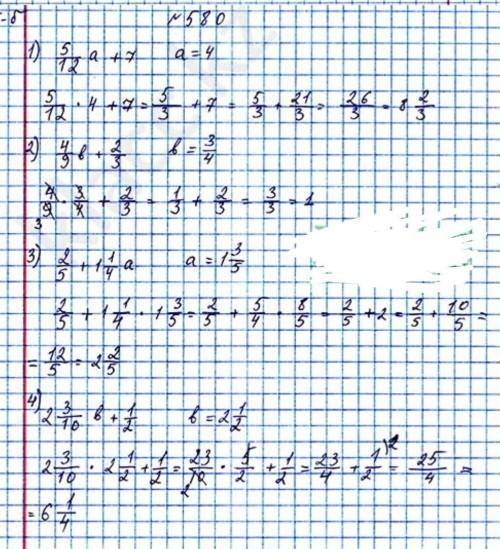 №580
1) 5/12 a + 7    a = 4
5/12 · 4 + 7 = 5/3 + 7 = 5/3 + 21/3 = 26/3 = 8 2/3
2) 4/9 в + 2/3    в = 3/4
4/9 · 3/4 + 2/3 = 1/3 + 2/3 = 3/3 = 1
3
3) 2/5 + 1 1/4 a    a = 1 3/5
2/5 + 1 1/4 · 1 3/5 = 2/5 + 5/4 · 8/5 = 2/5 + 2 = 2/5 + 10/5 =
= 12/5 = 2 2/5
4) 2 3/10 в + 1/2    в = 2 1/2
2 3/10 · 2 1/2 + 1/2 = 23/10 · 5/2 + 1/2 = 23/4 + 1/2 = 25/4 =
2
2
= 6 1/4